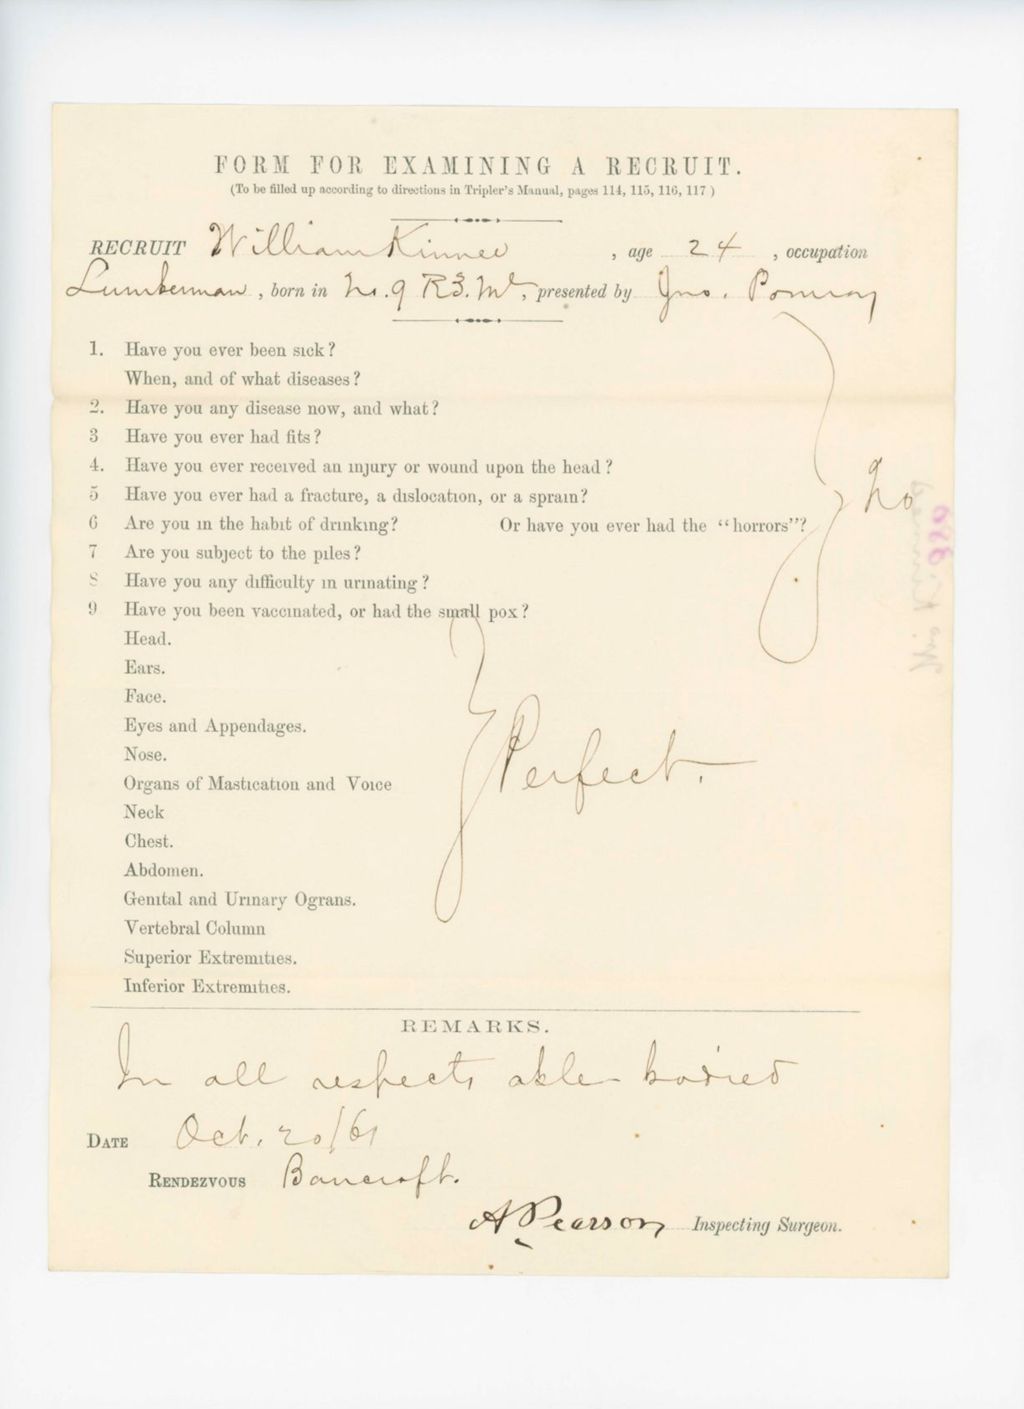 FORM FOR EXAMINING A RECRUIT.
(To be filled up according to directions in Tripler's Manual, pages 114, 115, 116, 117 )
RECRUIT William Kinnee , age 24 , occupation
Lumberman , born in No. 9 R3. Me, presented by Jno. Pomroy
1. Have you ever been sick?
When, and of what diseases?
2. Have you any disease now, and what?
3 Have you ever had fits?
4. Have you ever received an injury or wound upon the head?
5 Have you ever had a fracture, a dislocation, or a sprain?
No
6 Are you in the habit of drinking? Or have you ever had the "horrors"?
7 Are you subject to the piles?
8 Have you any difficulty in urinating?
9 Have you been vaccinated, or had the small pox?
Head.
Ears.
Face.
Eyes and Appendages.
Nose.
Perfect.
Organs of Mastication and Voice
Neck
Chest.
Abdomen.
Genital and Urinary Ograns.
Vertebral Column
Superior Extremities.
Inferior Extremities.
REMARKS.
In all respects able bodied
DATE Oct. 20/61
RENDEZVOUS Bancroft.
A Pearson Inspecting Surgeon.